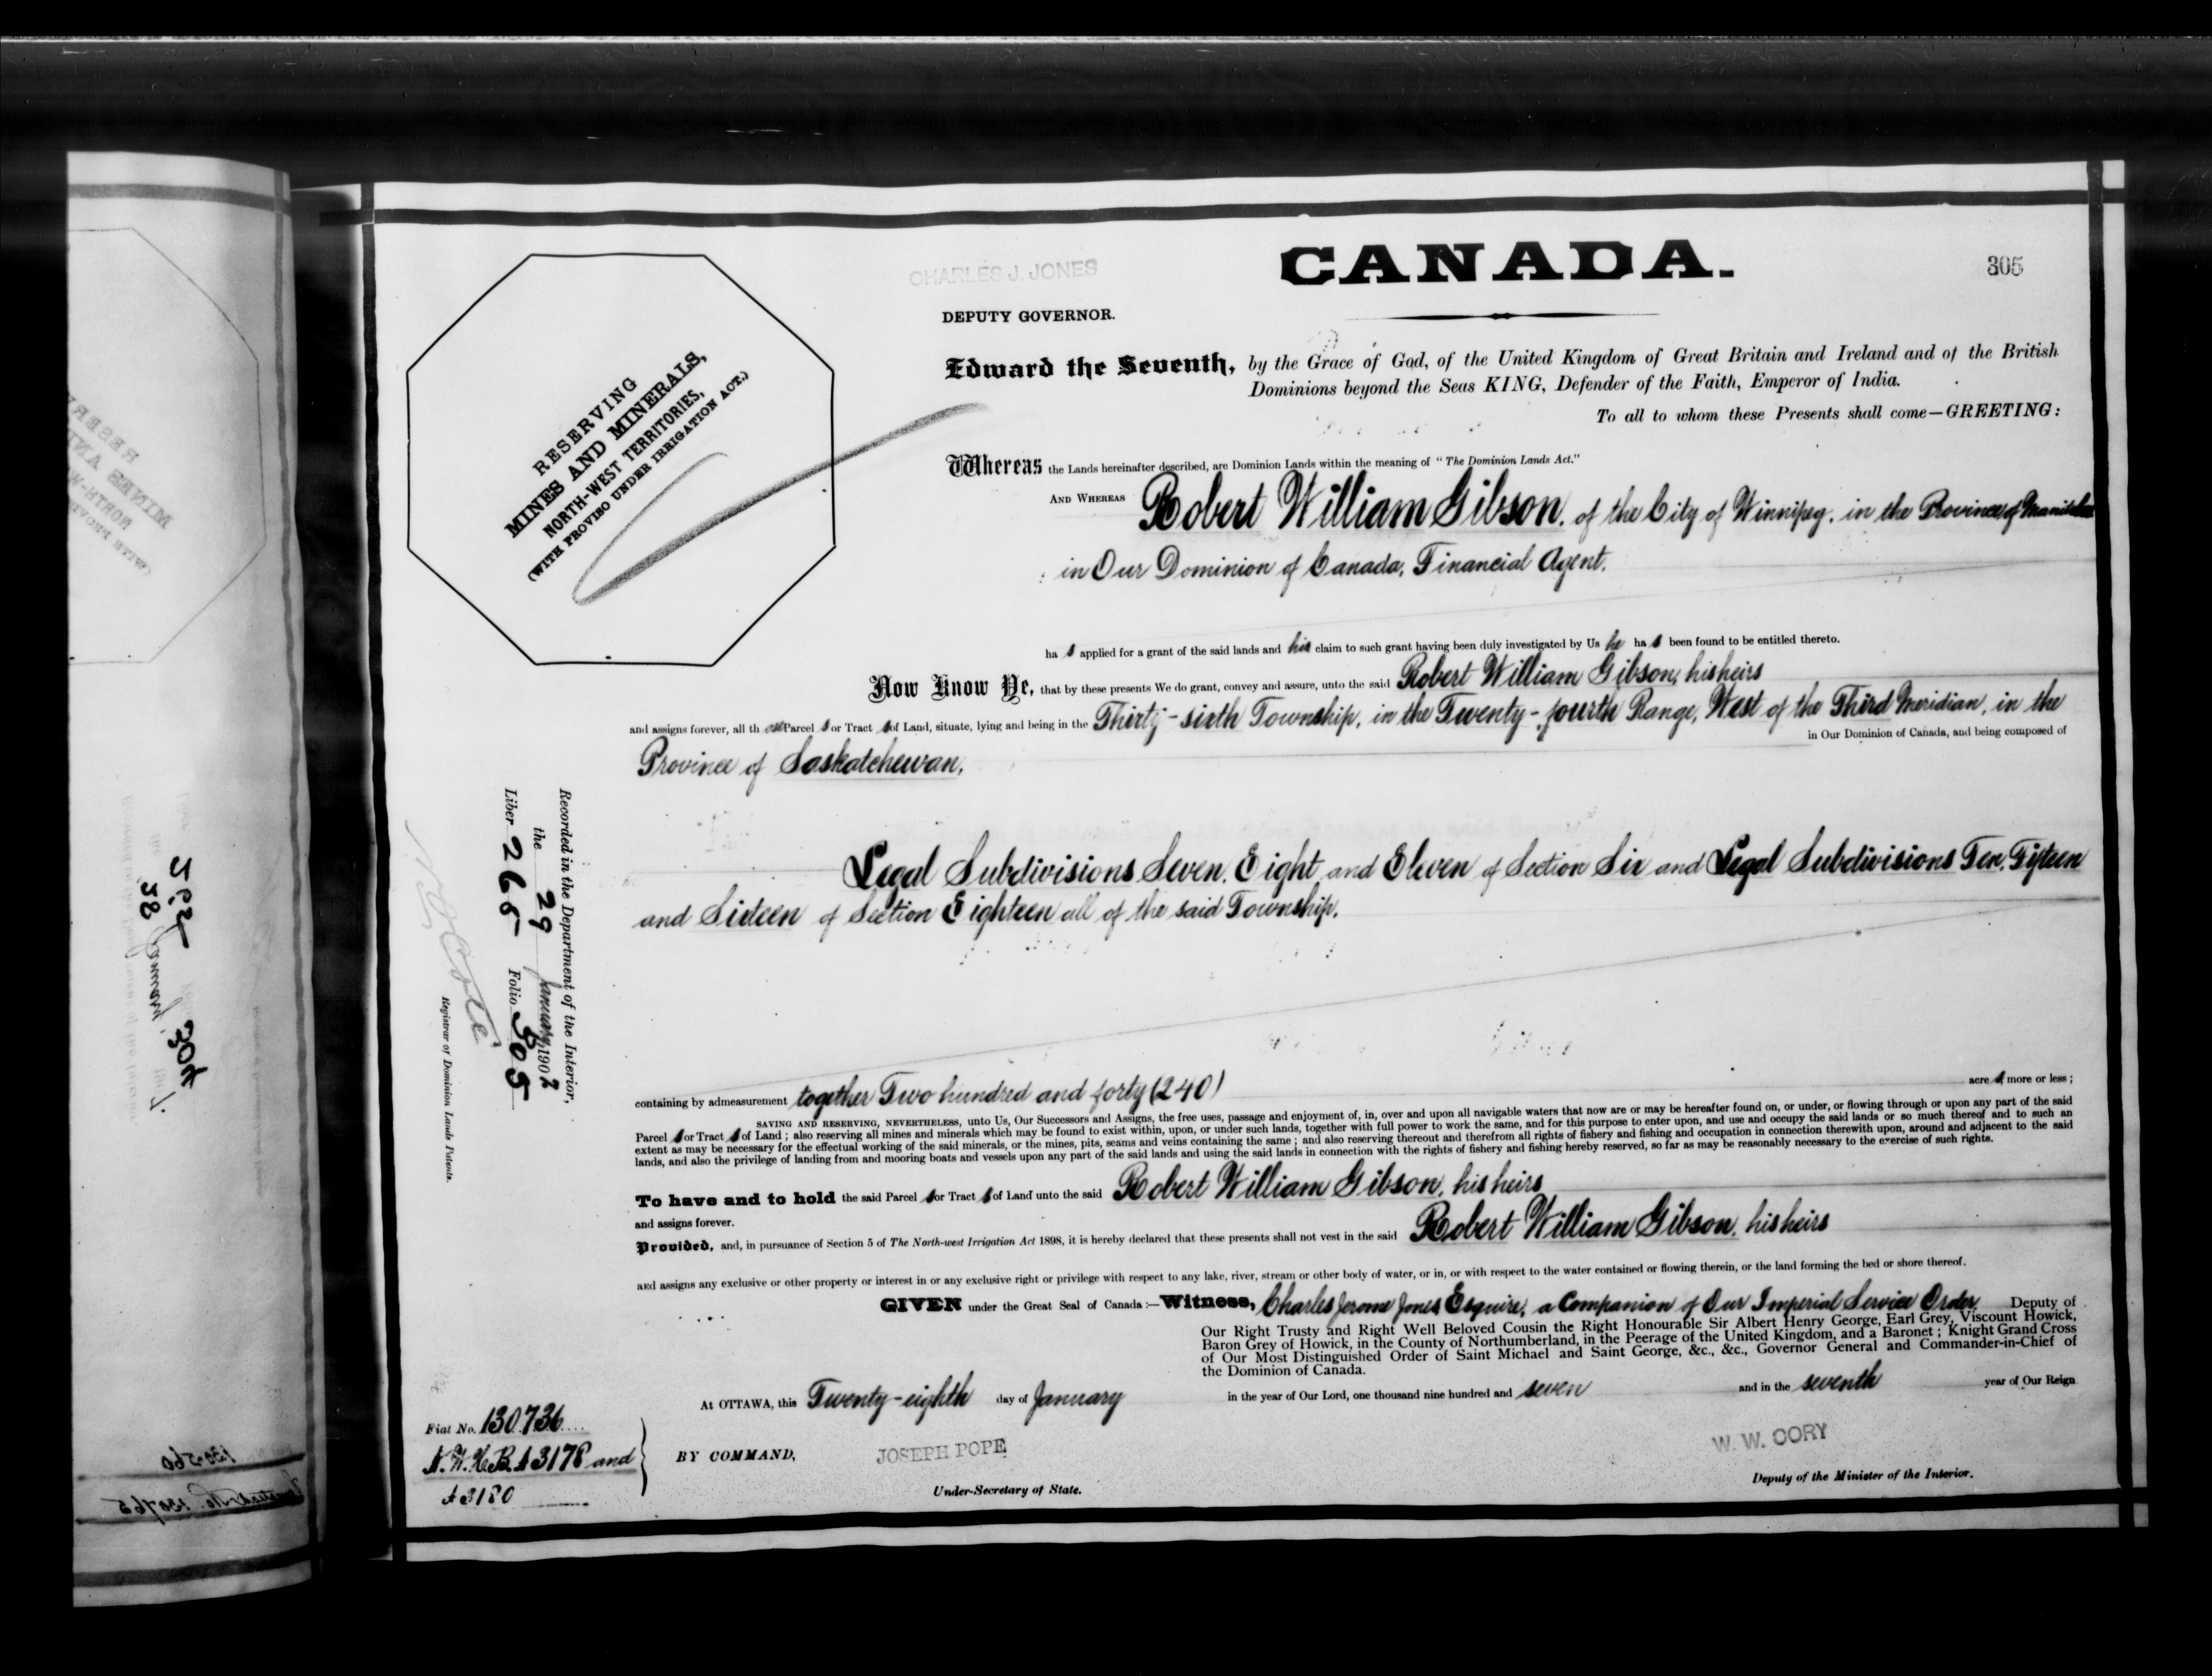 CANADA.
305
CHARLES J. JONES
DEPUTY GOVERNOR.
RESERVING
MINES AND MINERALS,
NORTH-WEST TERRITORIES,
(WITH PROVISO UNDER IRRIGATION ACT.)
Edward the Seventh, by the Grace of God, of the United Kingdom of Great Britain and Ireland and of the British
Dominions beyond the Seas KING, Defender of the Faith, Emperor of India.
To all to whom these Presents shall come—GREETING:
Whereas the Lands hereinafter described, are Dominion Lands within the meaning of "The Dominion Lands Act."
AND WHEREAS Robert William Gibson, of the City of Winnipeg, in the Province of Manitoba
in Our Dominion of Canada, Financial Agent.
ha s applied for a grant of the said lands and his claim to such grant having been duly investigated by Us he ha s been found to be entitled thereto.
Now Know Ye, that by these presents We do grant, convey and assure, unto the said Robert William Gibson, his heirs
and assigns forever, all th ose Parcel s or Tract s of Land, situate, lying and being in the Thirty-sixth Township, in the Twenty-fourth Range, West of the Third Meridian, in the
in Our Dominion of Canada, and being composed of
Province of Saskatchewan,
Legal Subdivisions Seven, Eight and Eleven of Section Six and Legal Subdivisions Ten, Fifteen
and Sixteen of Section Eighteen all of the said Township,
Recorded in the Department of the Interior,
the 29 January, 1907
Liber 265 Folio 305
N. O. Coté
Registrar of Dominion Lands Patents.
containing by admeasurement together Two hundred and forty (240) acre s, more or less;
SAVING AND RESERVING, NEVERTHELESS, unto Us, Our Successors and Assigns, the free uses, passage and enjoyment of, in, over and upon all navigable waters that now are or may be hereafter found on, or under, or flowing through or upon any part of the said
Parcel s or Tract s of Land; also reserving all mines and minerals which may be found to exist within, upon, or under such lands, together with full power to work the same, and for this purpose to enter upon, and use and occupy the said lands or so much thereof and to such an
extent as may be necessary for the effectual working of the said minerals, or the mines, pits, seams and veins containing the same; and also reserving thereout and therefrom all rights of fishery and fishing and occupation in connection therewith upon, around and adjacent to the said
lands, and also the privilege of landing from and mooring boats and vessels upon any part of the said lands and using the said lands in connection with the rights of fishery and fishing hereby reserved, so far as may be reasonably necessary to the exercise of such rights.
To have and to hold the said Parcel s or Tract s of Land unto the said Robert William Gibson, his heirs
and assigns forever.
Provided, and, in pursuance of Section 5 of The North-west Irrigation Act 1898, it is hereby declared that these presents shall not vest in the said Robert William Gibson, his heirs
and assigns any exclusive or other property or interest in or any exclusive right or privilege with respect to any lake, river, stream or other body of water, or in, or with respect to the water contained or flowing therein, or the land forming the bed or shore thereof.
GIVEN under the Great Seal of Canada:—Witness, Charles Jerome Jones Esquire, a Companion of Our Imperial Service Order, Deputy of
Our Right Trusty and Right Well Beloved Cousin the Right Honourable Sir Albert Henry George, Earl Grey, Viscount Howick,
Baron Grey of Howick, in the County of Northumberland, in the Peerage of the United Kingdom, and a Baronet; Knight Grand Cross
of Our Most Distinguished Order of Saint Michael and Saint George, &c., &c., Governor General and Commander-in-Chief of
the Dominion of Canada.
At OTTAWA, this Twenty-eighth day of January in the year of Our Lord, one thousand nine hundred and seven and in the seventh year of Our Reign
Fiat No. 130736
N.W.H.B. A3178 and
A3180
BY COMMAND,
JOSEPH POPE
Under-Secretary of State.
W. W. CORY
Deputy of the Minister of the Interior.